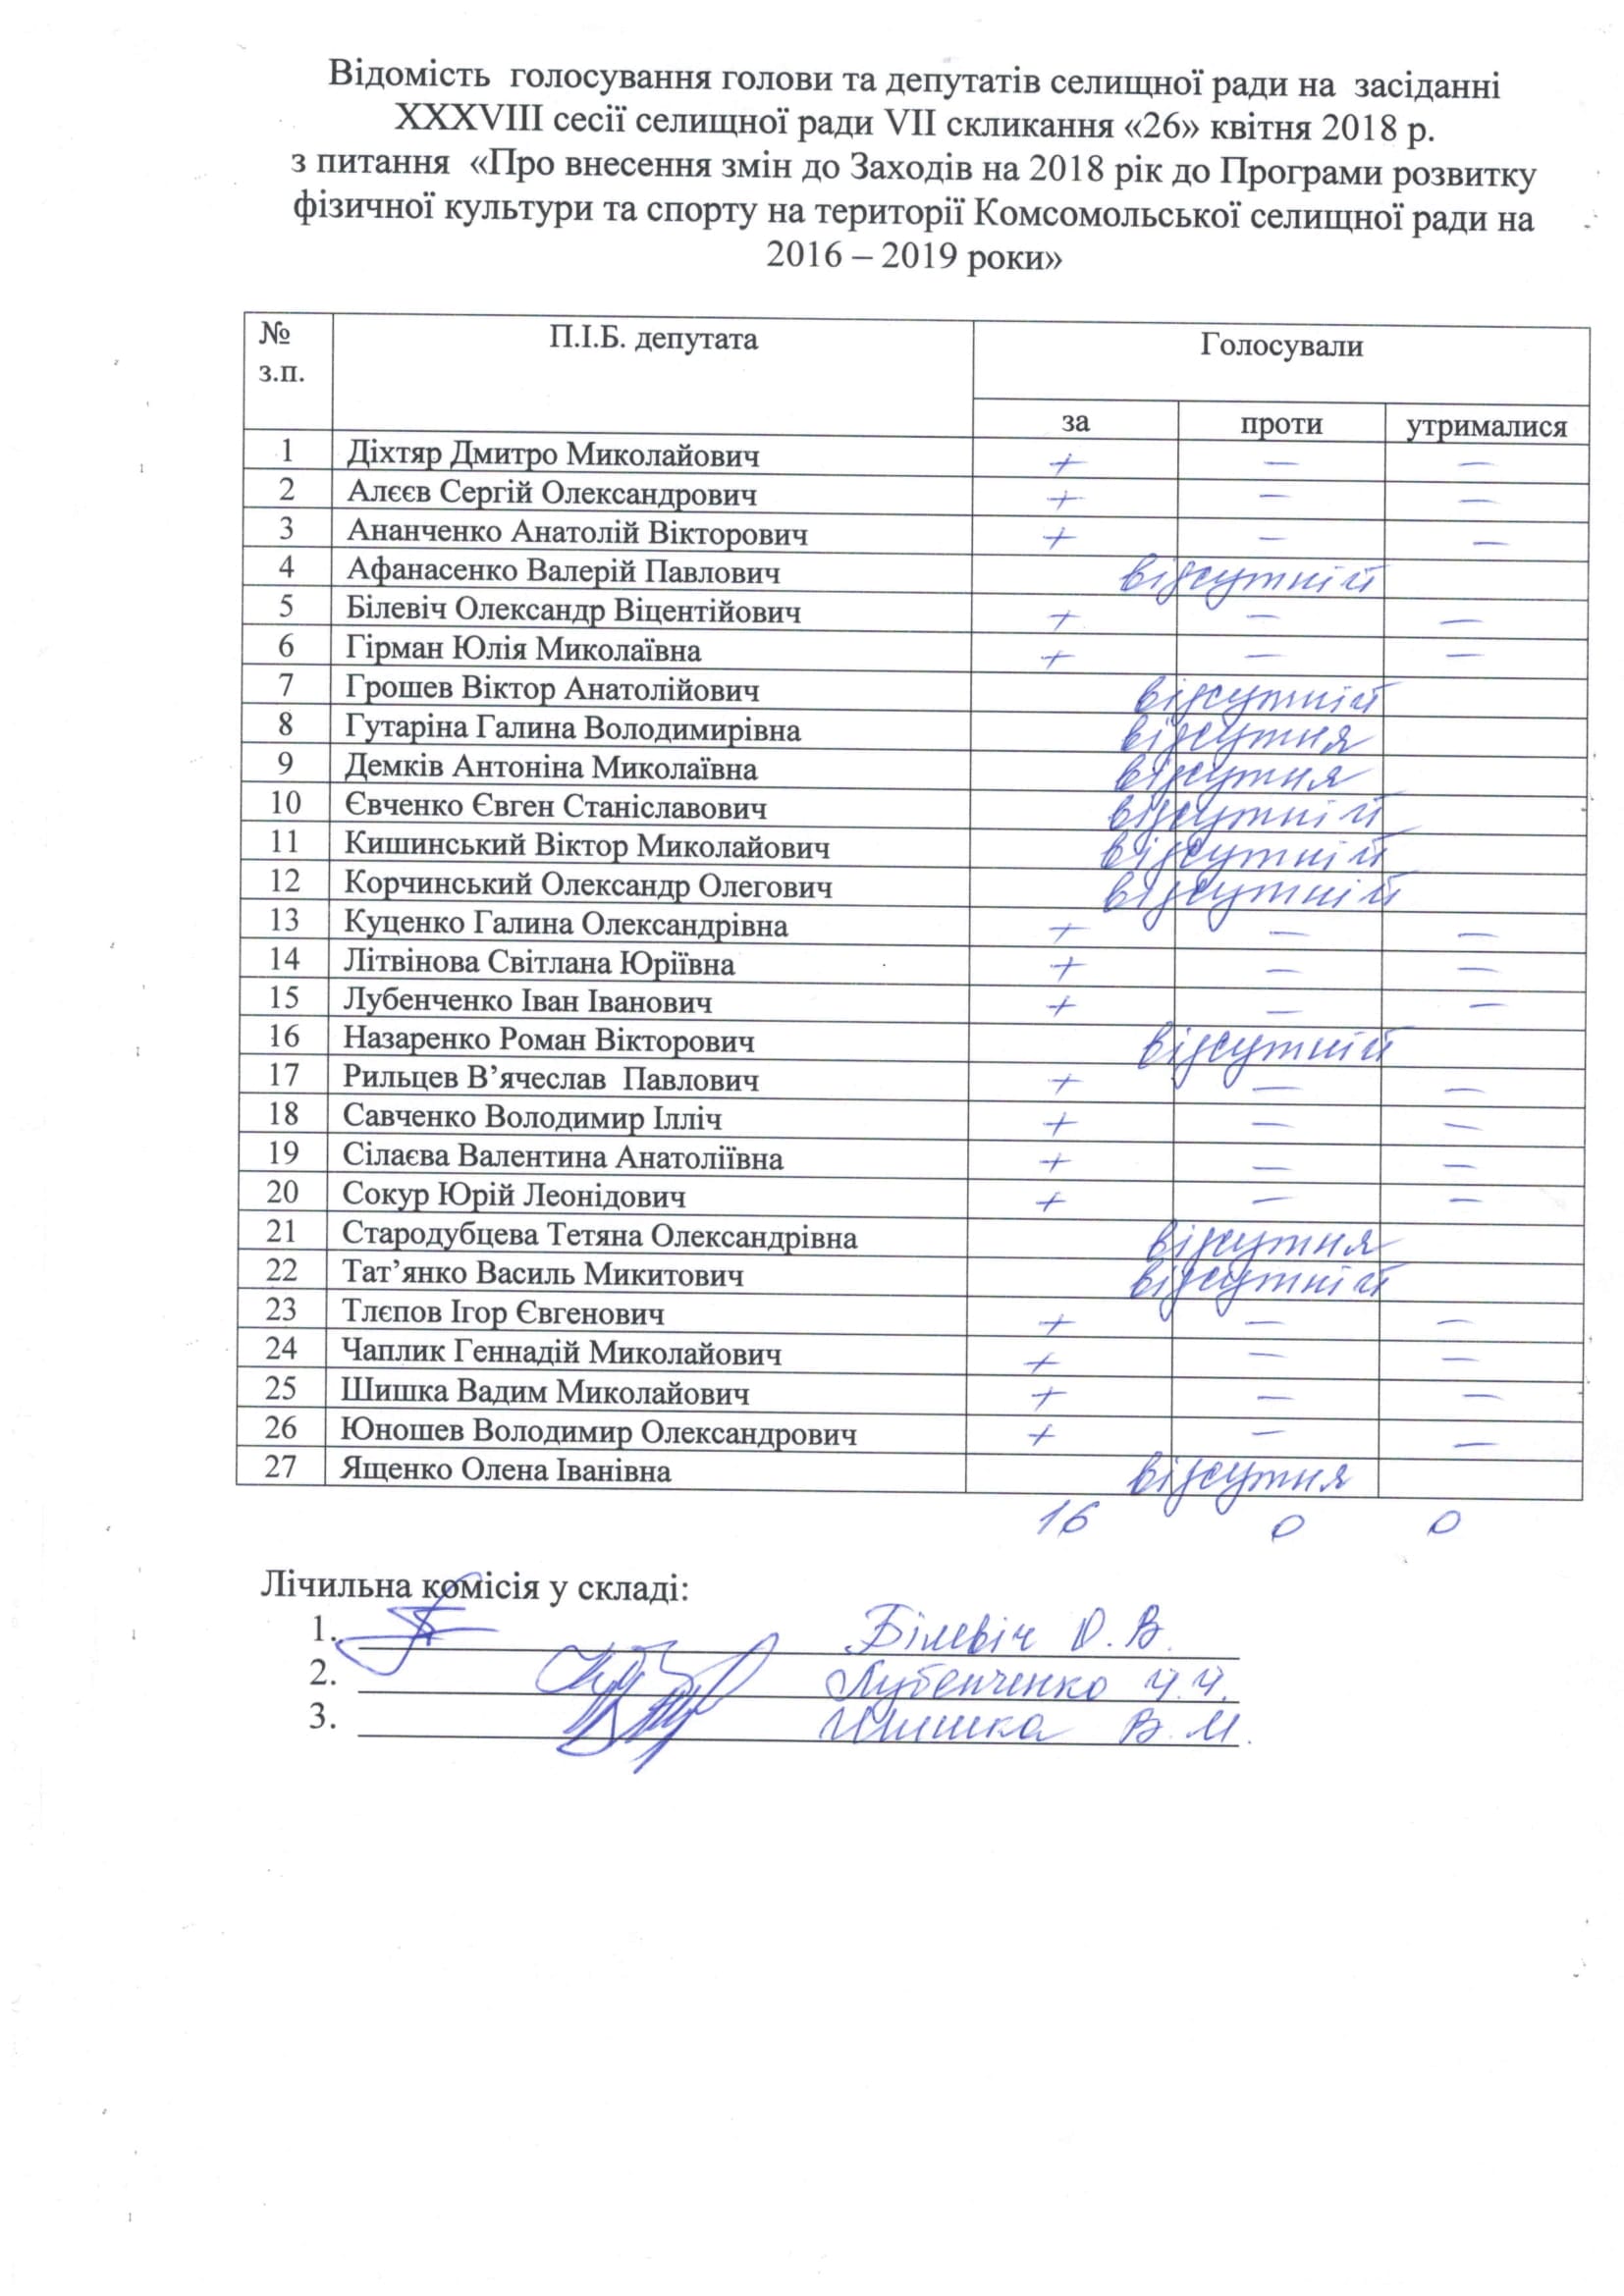 Відомість голосування голови та депутатів селищної ради на засіданні
XXXVIII сесії селищної ради VII скликання «26» квітня 2018 р.
з питання «Про внесення змін до Заходів на 2018 рік до Програми розвитку
фізичної культури та спорту на території Комсомольської селищної ради на
2016 – 2019 роки»
№ з.п. П.І.Б. депутата Голосували
за проти утрималися
1 Діхтяр Дмитро Миколайович + – –
2 Алєєв Сергій Олександрович + – –
3 Ананченко Анатолій Вікторович + – –
4 Афанасенко Валерій Павлович відсутній
5 Білевіч Олександр Віцентійович + – –
6 Гірман Юлія Миколаївна + – –
7 Грошев Віктор Анатолійович відсутній
8 Гутаріна Галина Володимирівна відсутня
9 Демків Антоніна Миколаївна відсутня
10 Євченко Євген Станіславович відсутній
11 Кишинський Віктор Миколайович відсутній
12 Корчинський Олександр Олегович відсутній
13 Куценко Галина Олександрівна + – –
14 Літвінова Світлана Юріївна + – –
15 Лубенченко Іван Іванович + – –
16 Назаренко Роман Вікторович відсутній
17 Рильцев В’ячеслав Павлович + – –
18 Савченко Володимир Ілліч + – –
19 Сілаєва Валентина Анатоліївна + – –
20 Сокур Юрій Леонідович + – –
21 Стародубцева Тетяна Олександрівна відсутня
22 Тат’янко Василь Микитович відсутній
23 Тлєпов Ігор Євгенович + – –
24 Чаплик Геннадій Миколайович + – –
25 Шишка Вадим Миколайович + – –
26 Юношев Володимир Олександрович + – –
27 Ященко Олена Іванівна відсутня
16 0 0
Лічильна комісія у складі:
1. Білевіч О.В.
2. Лубенченко И.И.
3. Шишка В.М.